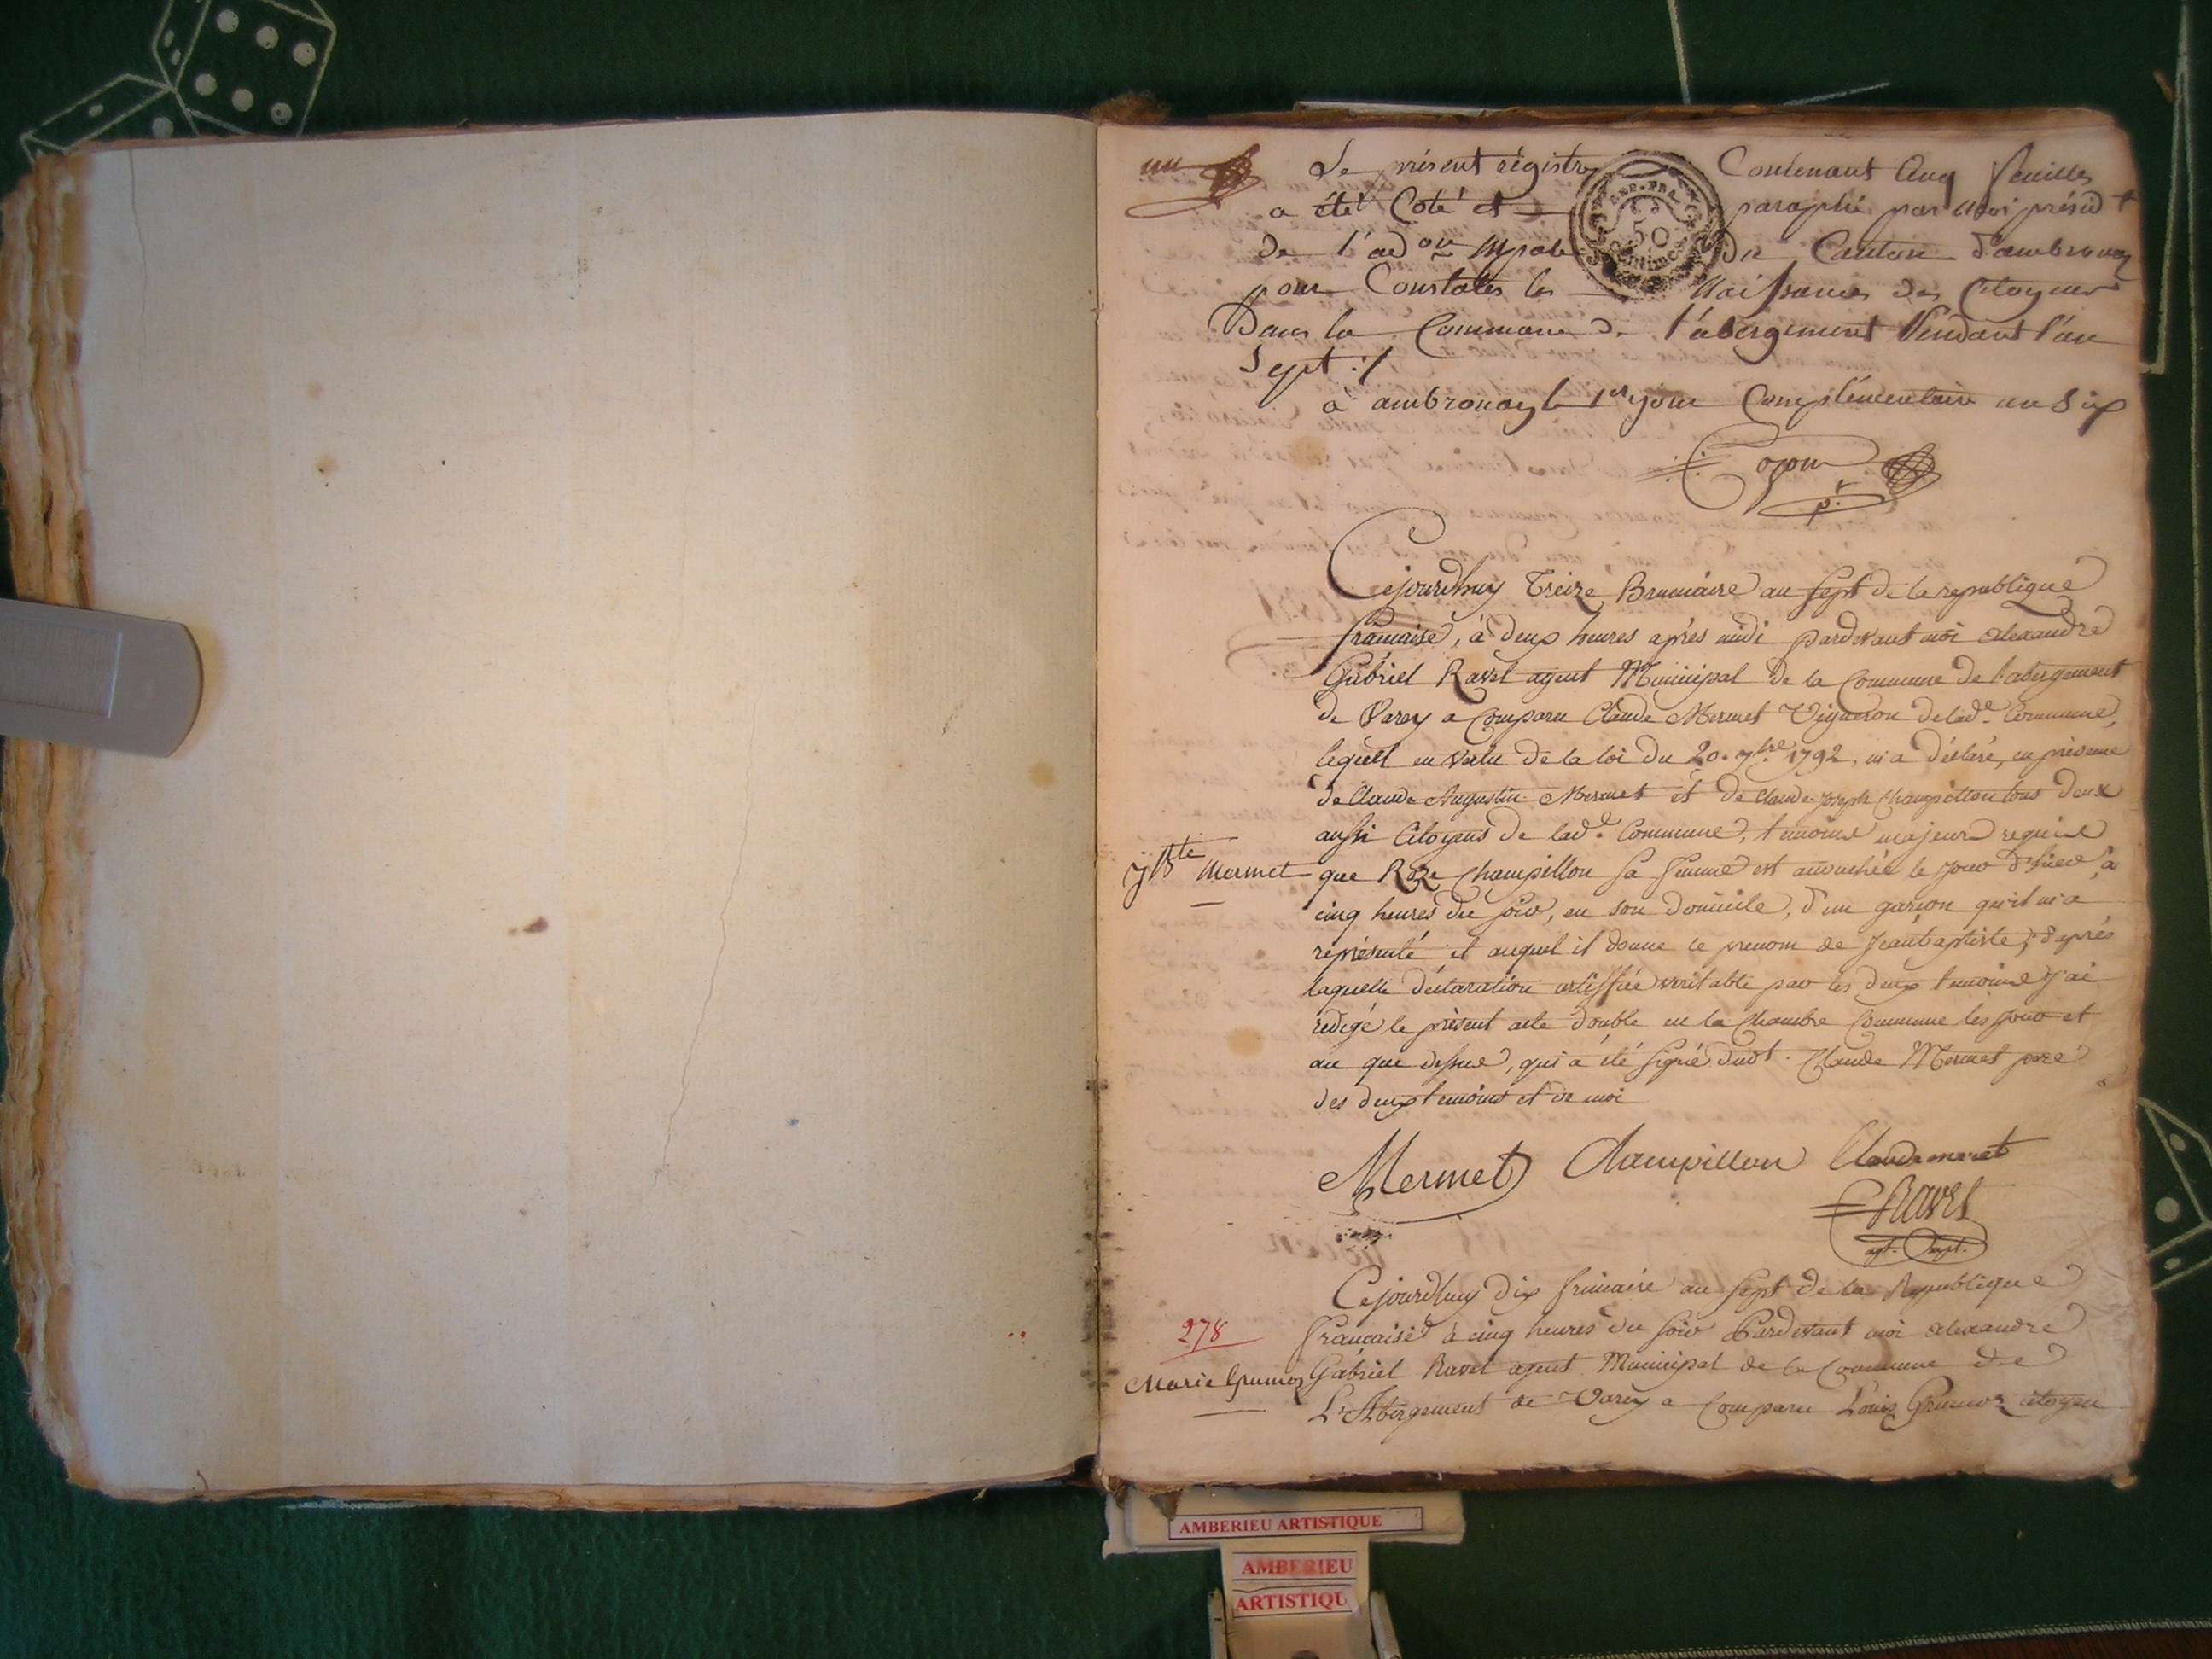 un
Le présent régistre Contenant Cinq feuilles
a été Coté et paraphé par moi présidt
de l'adon mpale du Canton d'ambronay
pour Constater les Naissances des Citoyens
Dans la Commune de l'abergement Pendant l'an
Sept :/
REP. FRA.
50
Centimes
à ambronay le 1er jour Complémentaire an Six
pt
Cejourdhuy Treize Brumaire an Sept de la republique
francaise, à deux heures après midi pardevant moi alexandre
Gabriel Ravet agent Municipal de la Commune de l'abergement
de Varey a Comparu Claude Mermet Vigneron de lade. Commune,
lequel en vertu de la loi du 20. 7bre 1792, m'a déclaré, en présence
de Claude Augustin Mermet et de Claude Joseph Champillon tous deux
aussi Citoyens de lade. Commune, temoins majeurs requis
jBte Mermet
que Roze Champillon sa femme est accouchée le jour d'hier à
cinq heures du soir, en son domicile, d'un garçon qu'il m'a
réprésenté et auquel il donne le prenom de Jeanbaptiste, d'après
laquelle déclaration certiffiée veritable par les deux temoins j'ai
redigé le présent acte double en la Chambre Commune les jour et
an que dessus, qui a été signé dudt. Claude Mermet pere
des deux temoins et de moi
Mermet Champillon Claude mermet
Ravet
agt.
Cejourdhuy dix frimaire an Sept de la Republique
278
francaise à cinq heures du soir Pardevant moi alexandre
Marie Grumoz
Gabriel Ravet agent Municipal de la Commune de
L'Abergement de Varey a Comparu Louis Grumoz citoyen
AMBERIEU ARTISTIQUE
AMBERIEU
ARTISTIQU